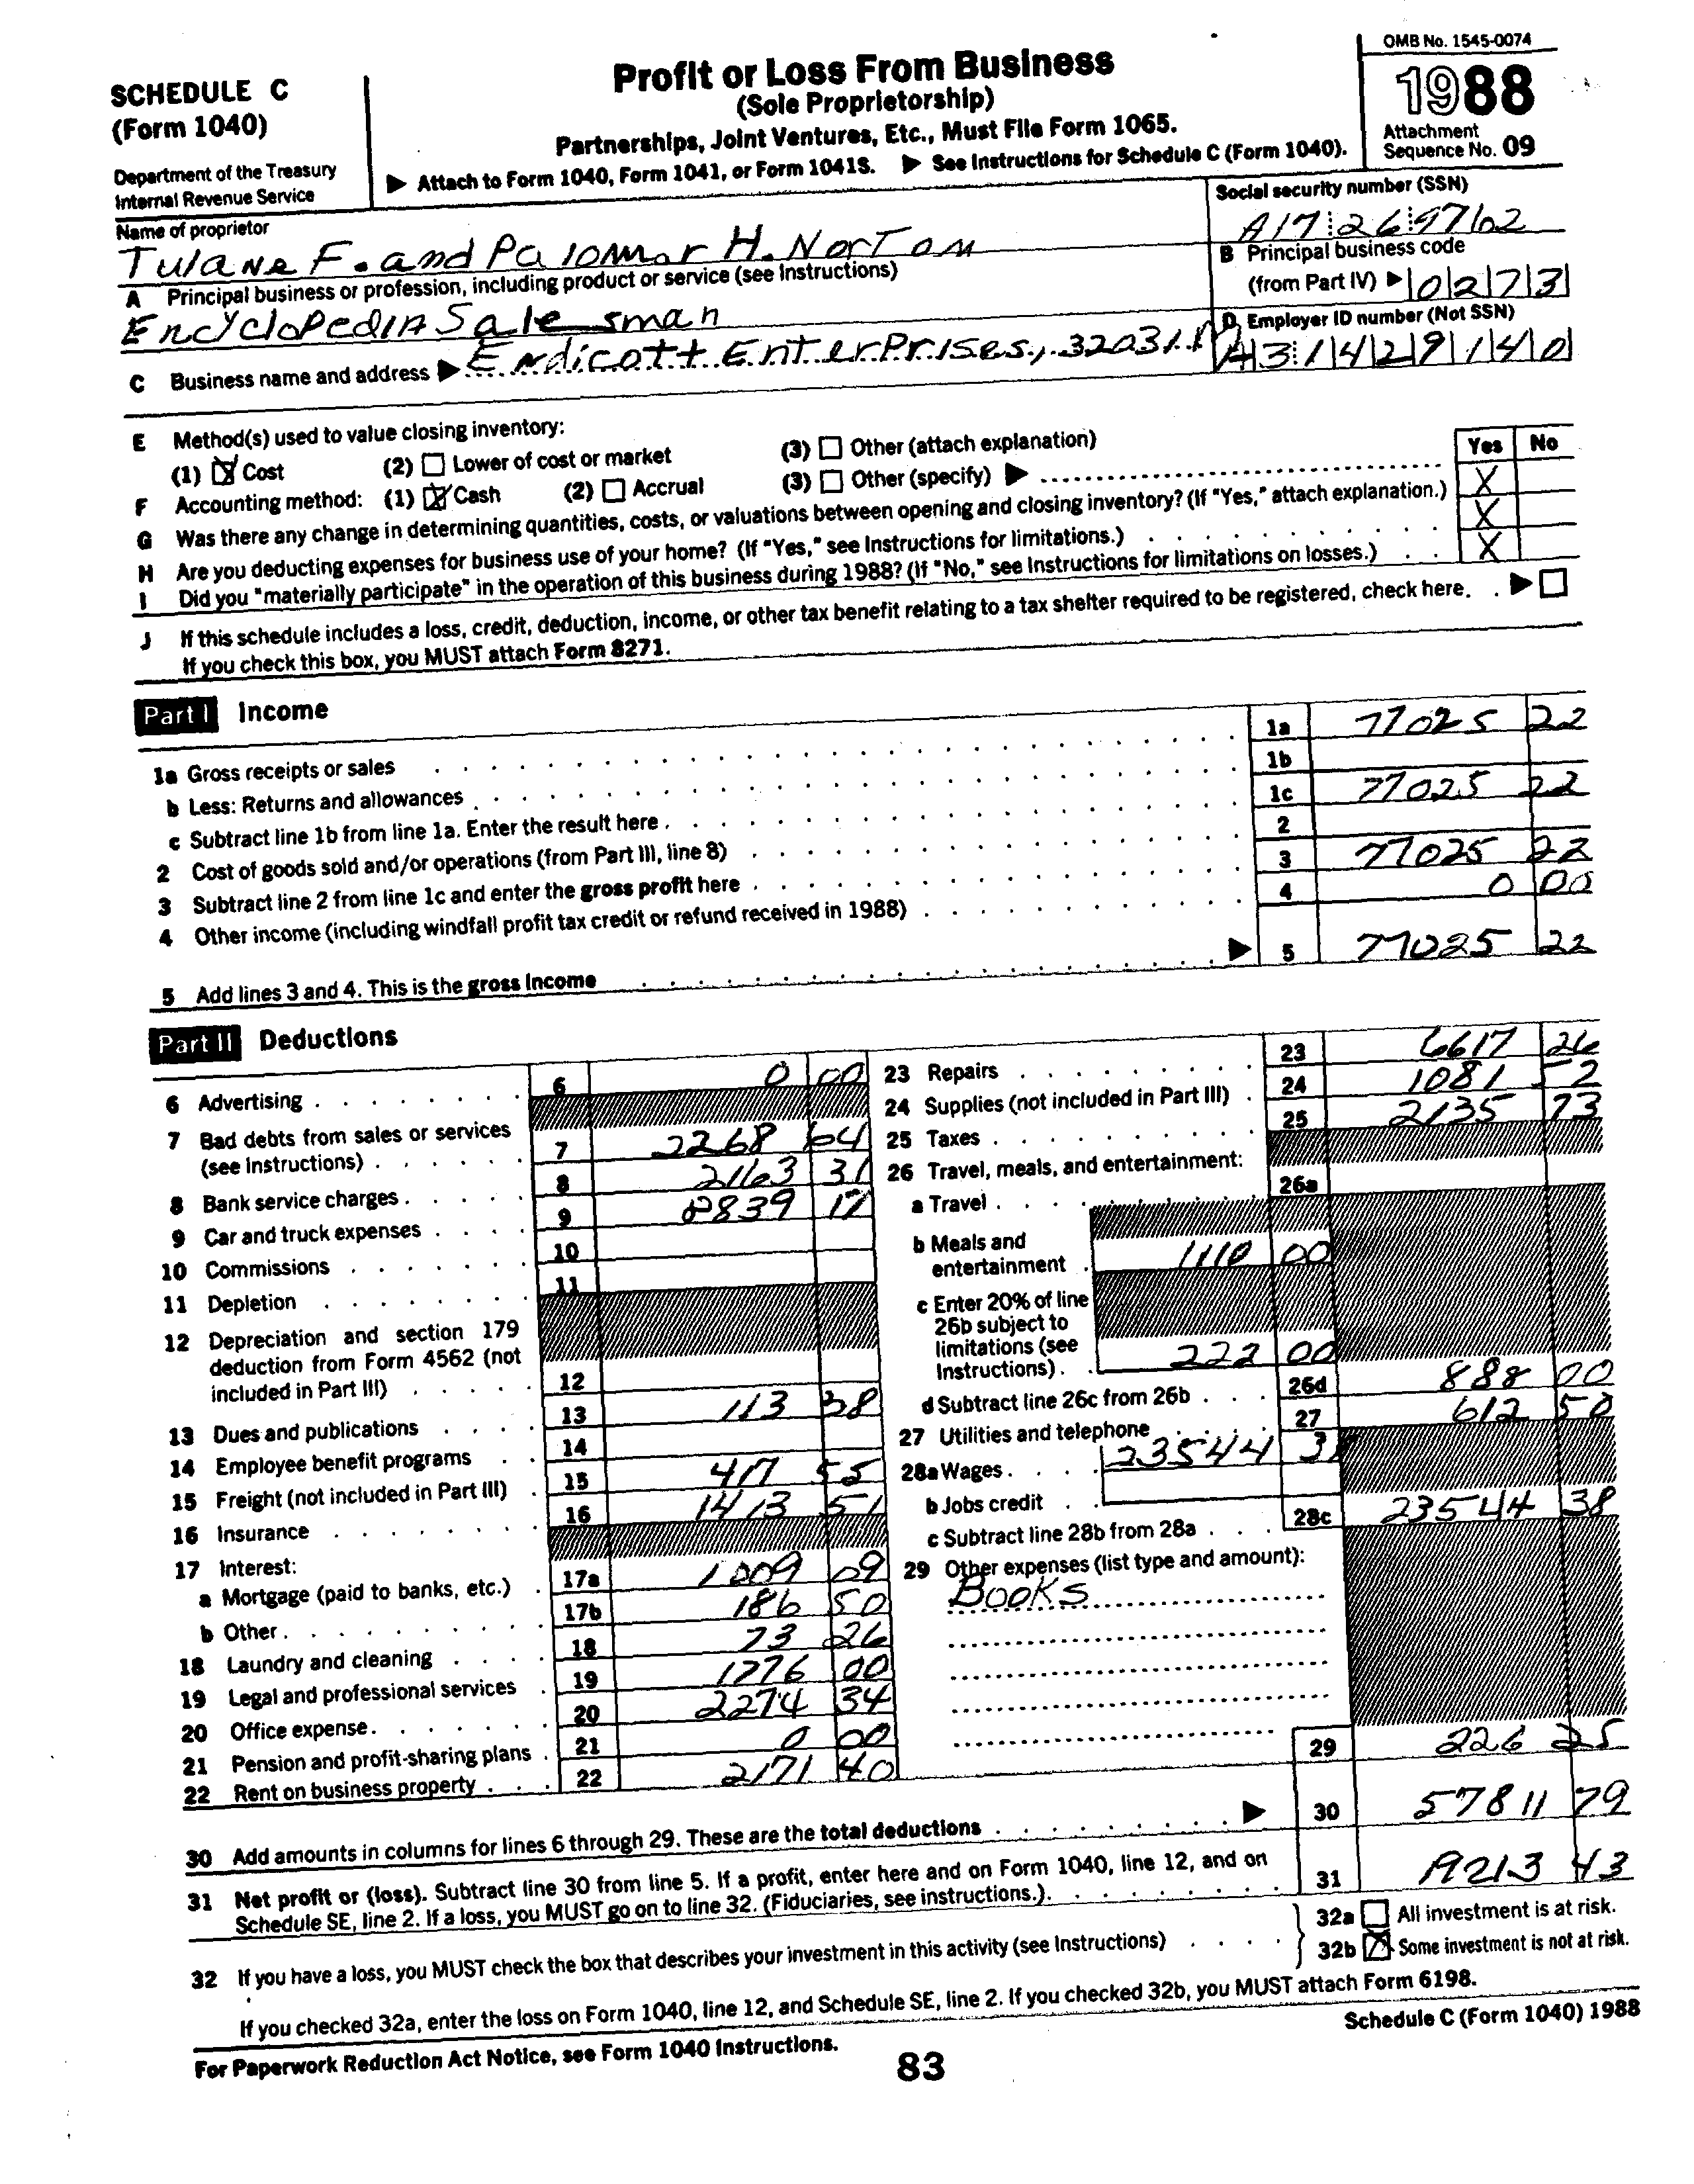 SCHEDULE C
(Form 1040)
Department of the Treasury
Internal Revenue Service
Profit or Loss From Business
(Sole Proprietorship)
Partnerships, Joint Ventures, Etc., Must File Form 1065.
▶ Attach to Form 1040, Form 1041, or Form 1041S. ▶ See Instructions for Schedule C (Form 1040).
OMB No. 1545-0074
1988
Attachment
Sequence No. 09
Name of proprietor
Tulane F. and Palomar H. Norton
Social security number (SSN)
A17 26 9702
A Principal business or profession, including product or service (see Instructions)
Encyclopedia Salesman
B Principal business code
(from Part IV) ▶ 0273
C Business name and address ▶ Endicott Enterprises, 32031
D Employer ID number (Not SSN)
A3 1429140
E Method(s) used to value closing inventory:
(1) ☒ Cost (2) ☐ Lower of cost or market (3) ☐ Other (attach explanation)
F Accounting method: (1) ☒ Cash (2) ☐ Accrual (3) ☐ Other (specify) ▶
Yes No
G Was there any change in determining quantities, costs, or valuations between opening and closing inventory? (If "Yes," attach explanation.) X
H Are you deducting expenses for business use of your home? (If "Yes," see Instructions for limitations.) X
I Did you "materially participate" in the operation of this business during 1988? (If "No," see Instructions for limitations on losses.) X
J If this schedule includes a loss, credit, deduction, income, or other tax benefit relating to a tax shelter required to be registered, check here. ▶ ☐
If you check this box, you MUST attach Form 8271.
Part I Income
1a Gross receipts or sales 1a 77025 22
b Less: Returns and allowances 1b
c Subtract line 1b from line 1a. Enter the result here 1c 77025 22
2 Cost of goods sold and/or operations (from Part III, line 8) 2
3 Subtract line 2 from line 1c and enter the gross profit here 3 77025 22
4 Other income (including windfall profit tax credit or refund received in 1988) 4 0 00
5 Add lines 3 and 4. This is the gross income ▶ 5 77025 22
Part II Deductions
6 Advertising 6 0 00
7 Bad debts from sales or services
(see Instructions) 7 2268 64
8 Bank service charges 8 2163 31
9 Car and truck expenses 9 8839 17
10 Commissions 10
11 Depletion 11
12 Depreciation and section 179
deduction from Form 4562 (not
included in Part III) 12
13 Dues and publications 13 113 38
14 Employee benefit programs 14
15 Freight (not included in Part III) 15 417 55
16 Insurance 16 1413 51
17 Interest:
a Mortgage (paid to banks, etc.) 17a 1009 09
b Other 17b 186 50
18 Laundry and cleaning 18 73 26
19 Legal and professional services 19 1776 00
20 Office expense 20 2274 34
21 Pension and profit-sharing plans 21 0 00
22 Rent on business property 22 2171 40
23 Repairs 23 6617 26
24 Supplies (not included in Part III) 24 1081 52
25 Taxes 25 2135 73
26 Travel, meals, and entertainment:
a Travel 26a
b Meals and
entertainment 1110 00
c Enter 20% of line
26b subject to
limitations (see
Instructions) 222 00
d Subtract line 26c from 26b 26d 888 00
27 Utilities and telephone 27 612 50
28a Wages 23544 38
b Jobs credit
c Subtract line 28b from 28a 28c 23544 38
29 Other expenses (list type and amount):
Books
29 226 25
30 Add amounts in columns for lines 6 through 29. These are the total deductions ▶ 30 57811 79
31 Net profit or (loss). Subtract line 30 from line 5. If a profit, enter here and on Form 1040, line 12, and on
Schedule SE, line 2. If a loss, you MUST go on to line 32. (Fiduciaries, see instructions.) 31 19213 43
32 If you have a loss, you MUST check the box that describes your investment in this activity (see Instructions)
32a ☐ All investment is at risk.
32b ☒ Some investment is not at risk.
If you checked 32a, enter the loss on Form 1040, line 12, and Schedule SE, line 2. If you checked 32b, you MUST attach Form 6198.
For Paperwork Reduction Act Notice, see Form 1040 Instructions.
Schedule C (Form 1040) 1988
83